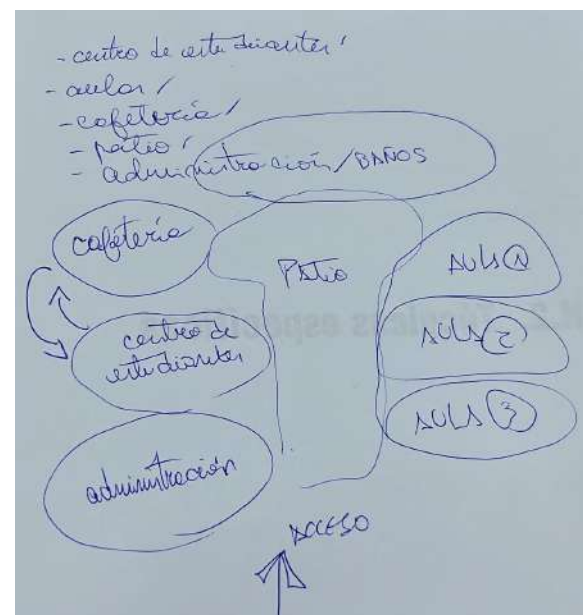 - centro de estudiantes /
- aulas /
- cafetería /
- patio /
- administración / BAÑOS
cafetería
PATIO
AULA 1
centro de
estudiantes
AULA 2
AULA 3
administración
ACCESO